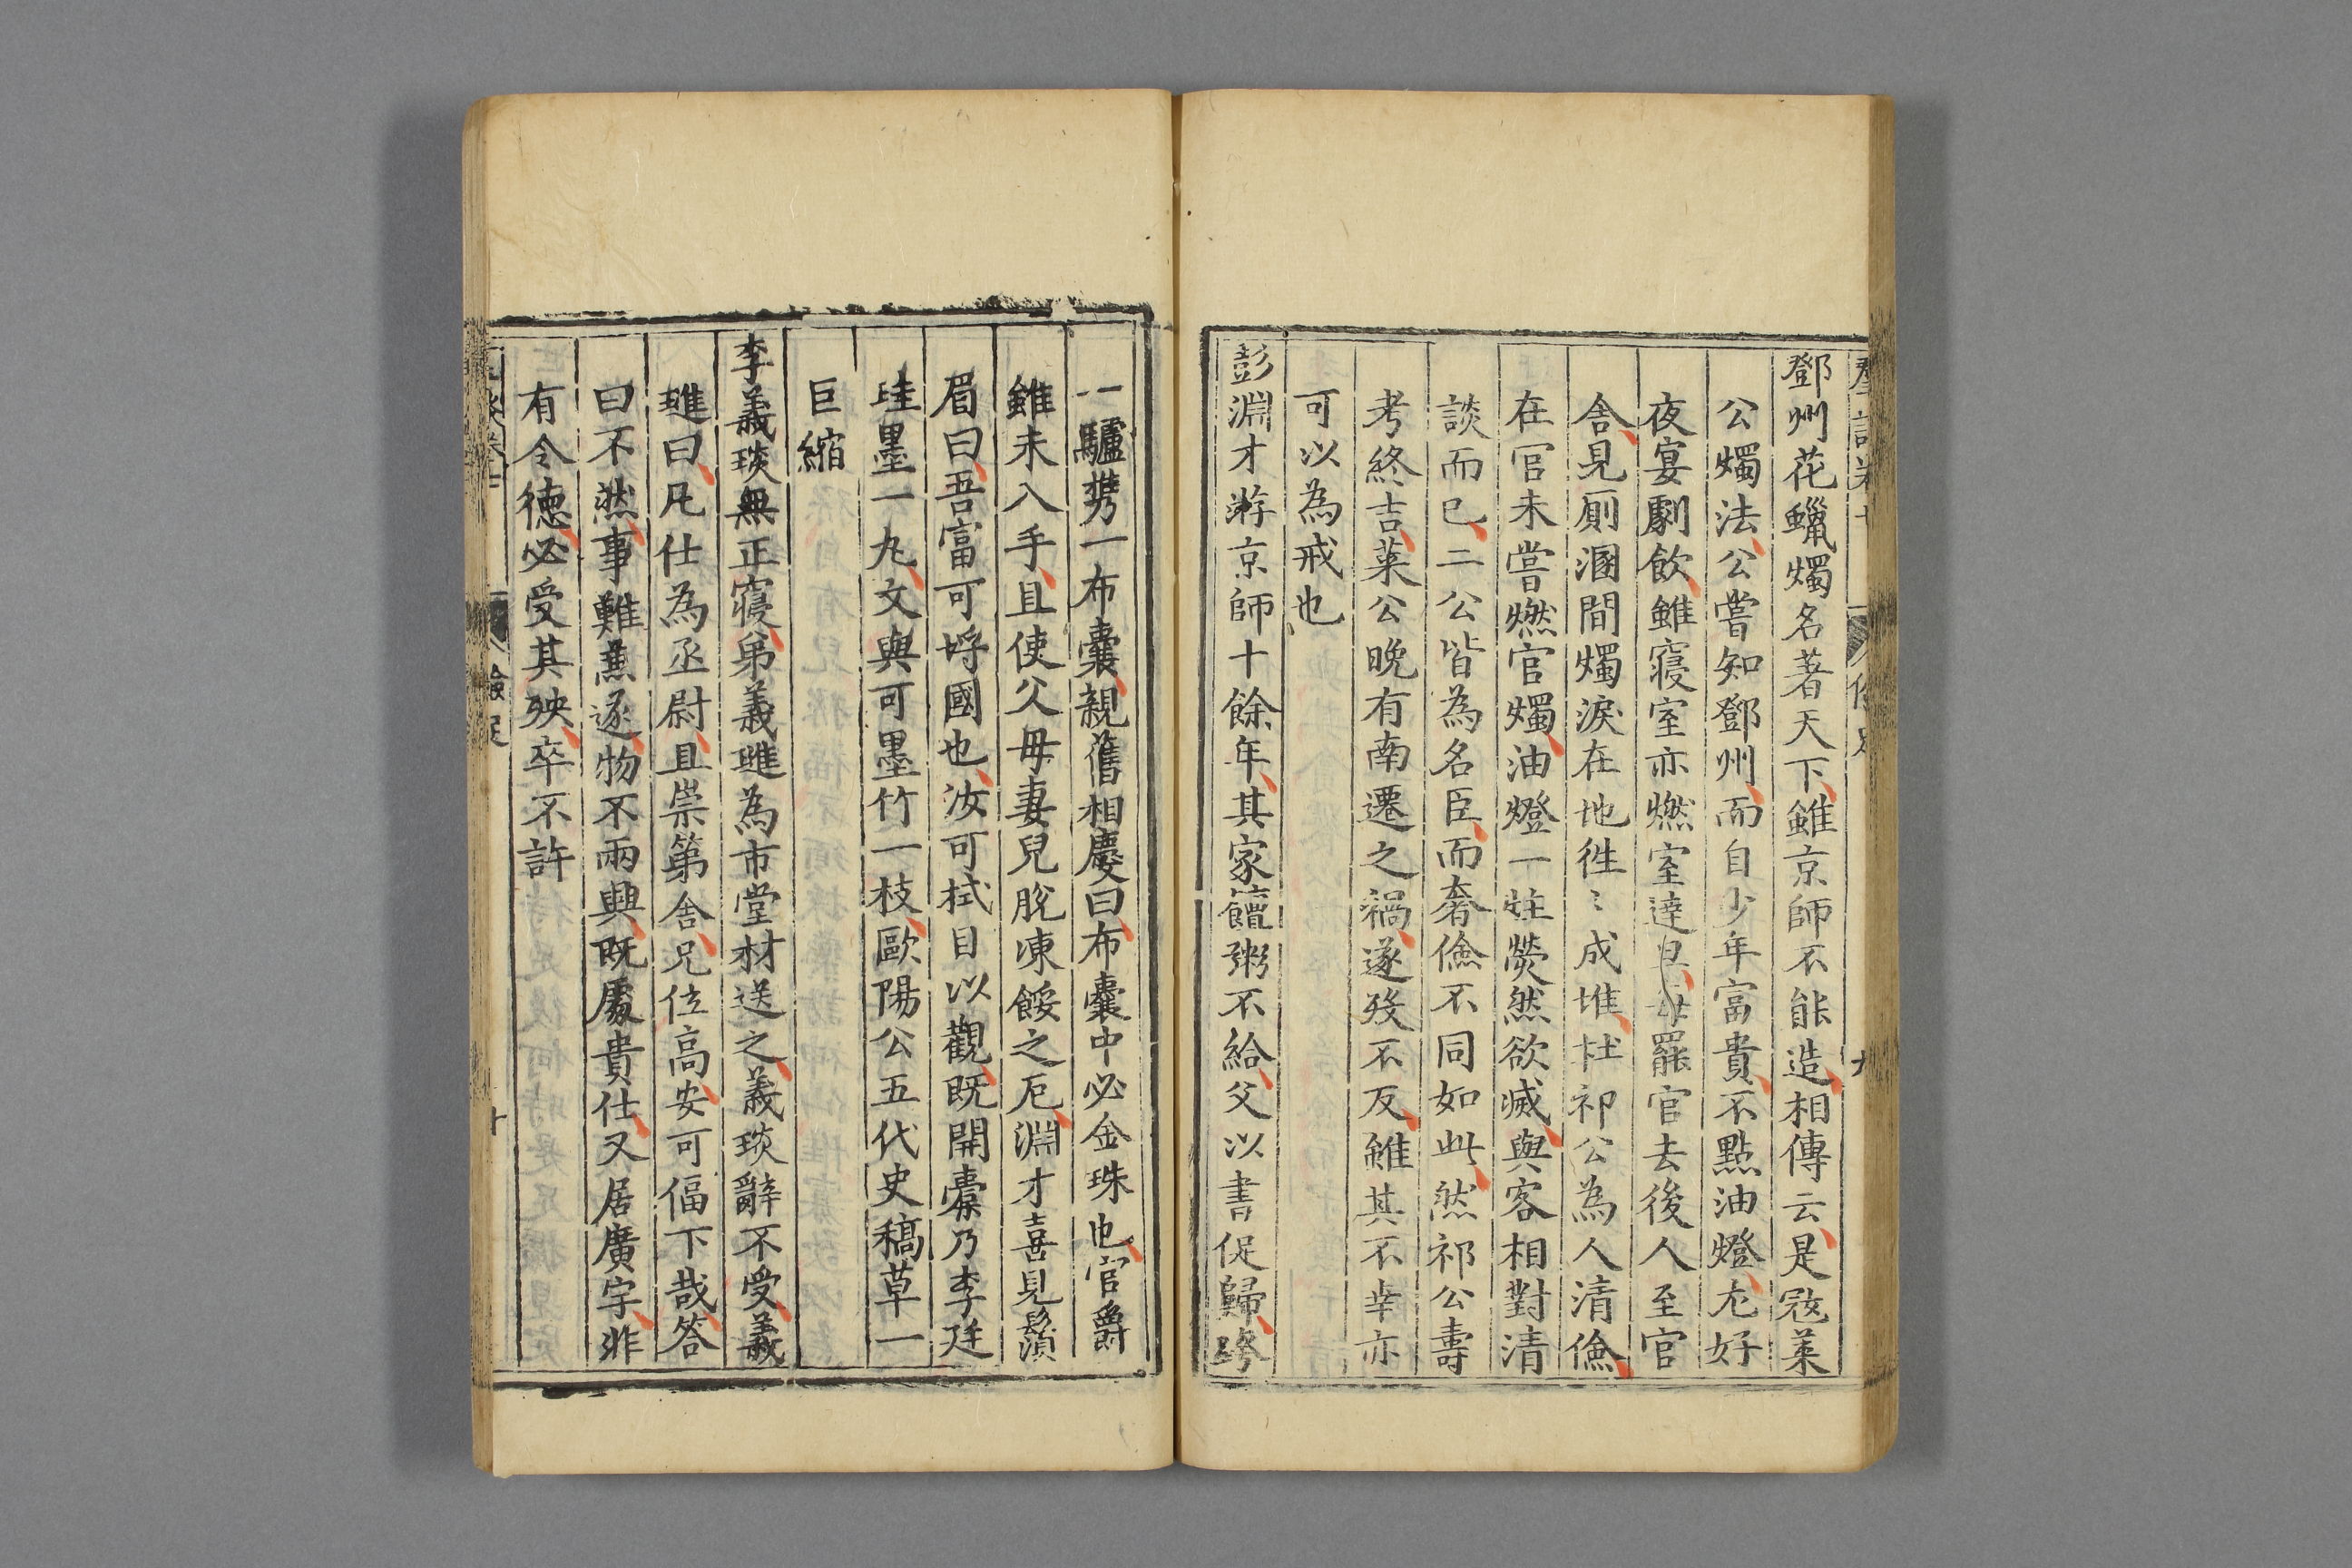 鄧州花蠟燭名著天下雖京師不能造相傳云是冦萊
公燭法公嘗知鄧州而自少年富貴不點油燈尤好
夜宴劇飲雖寢室亦燃室達旦每罷官去後人至官
舍見厠溷間燭淚在地徃〻成堆杜祁公為人清儉
在官未嘗燃官燭油燈一炷熒然欲滅與客相對清
談而已二公皆為名臣而奢儉不同如此然祁公壽
考終吉萊公晚有南遷之禍遂殁不反雖其不幸亦
可以為戒也
彭淵才游京師十餘年其家饘粥不給父以書促歸跨
一驢携一布囊親舊相慶曰布囊中必金珠也官爵
雖未入手且使父母妻兒脫凍餒之厄淵才喜見鬚
眉曰吾富可埒國也汝可拭目以觀既開橐乃李廷
珪墨一丸文與可墨竹一枝歐陽公五代史稿草一
巨縮
李義琰無正寢弟義璡為市堂材送之義琰辭不受義
璡曰凡仕為丞尉且崇第舍兄位高安可偪下哉答
曰不然事難兼遂物不兩興既處貴仕又居廣宇非
有令德必受其殃卒不許